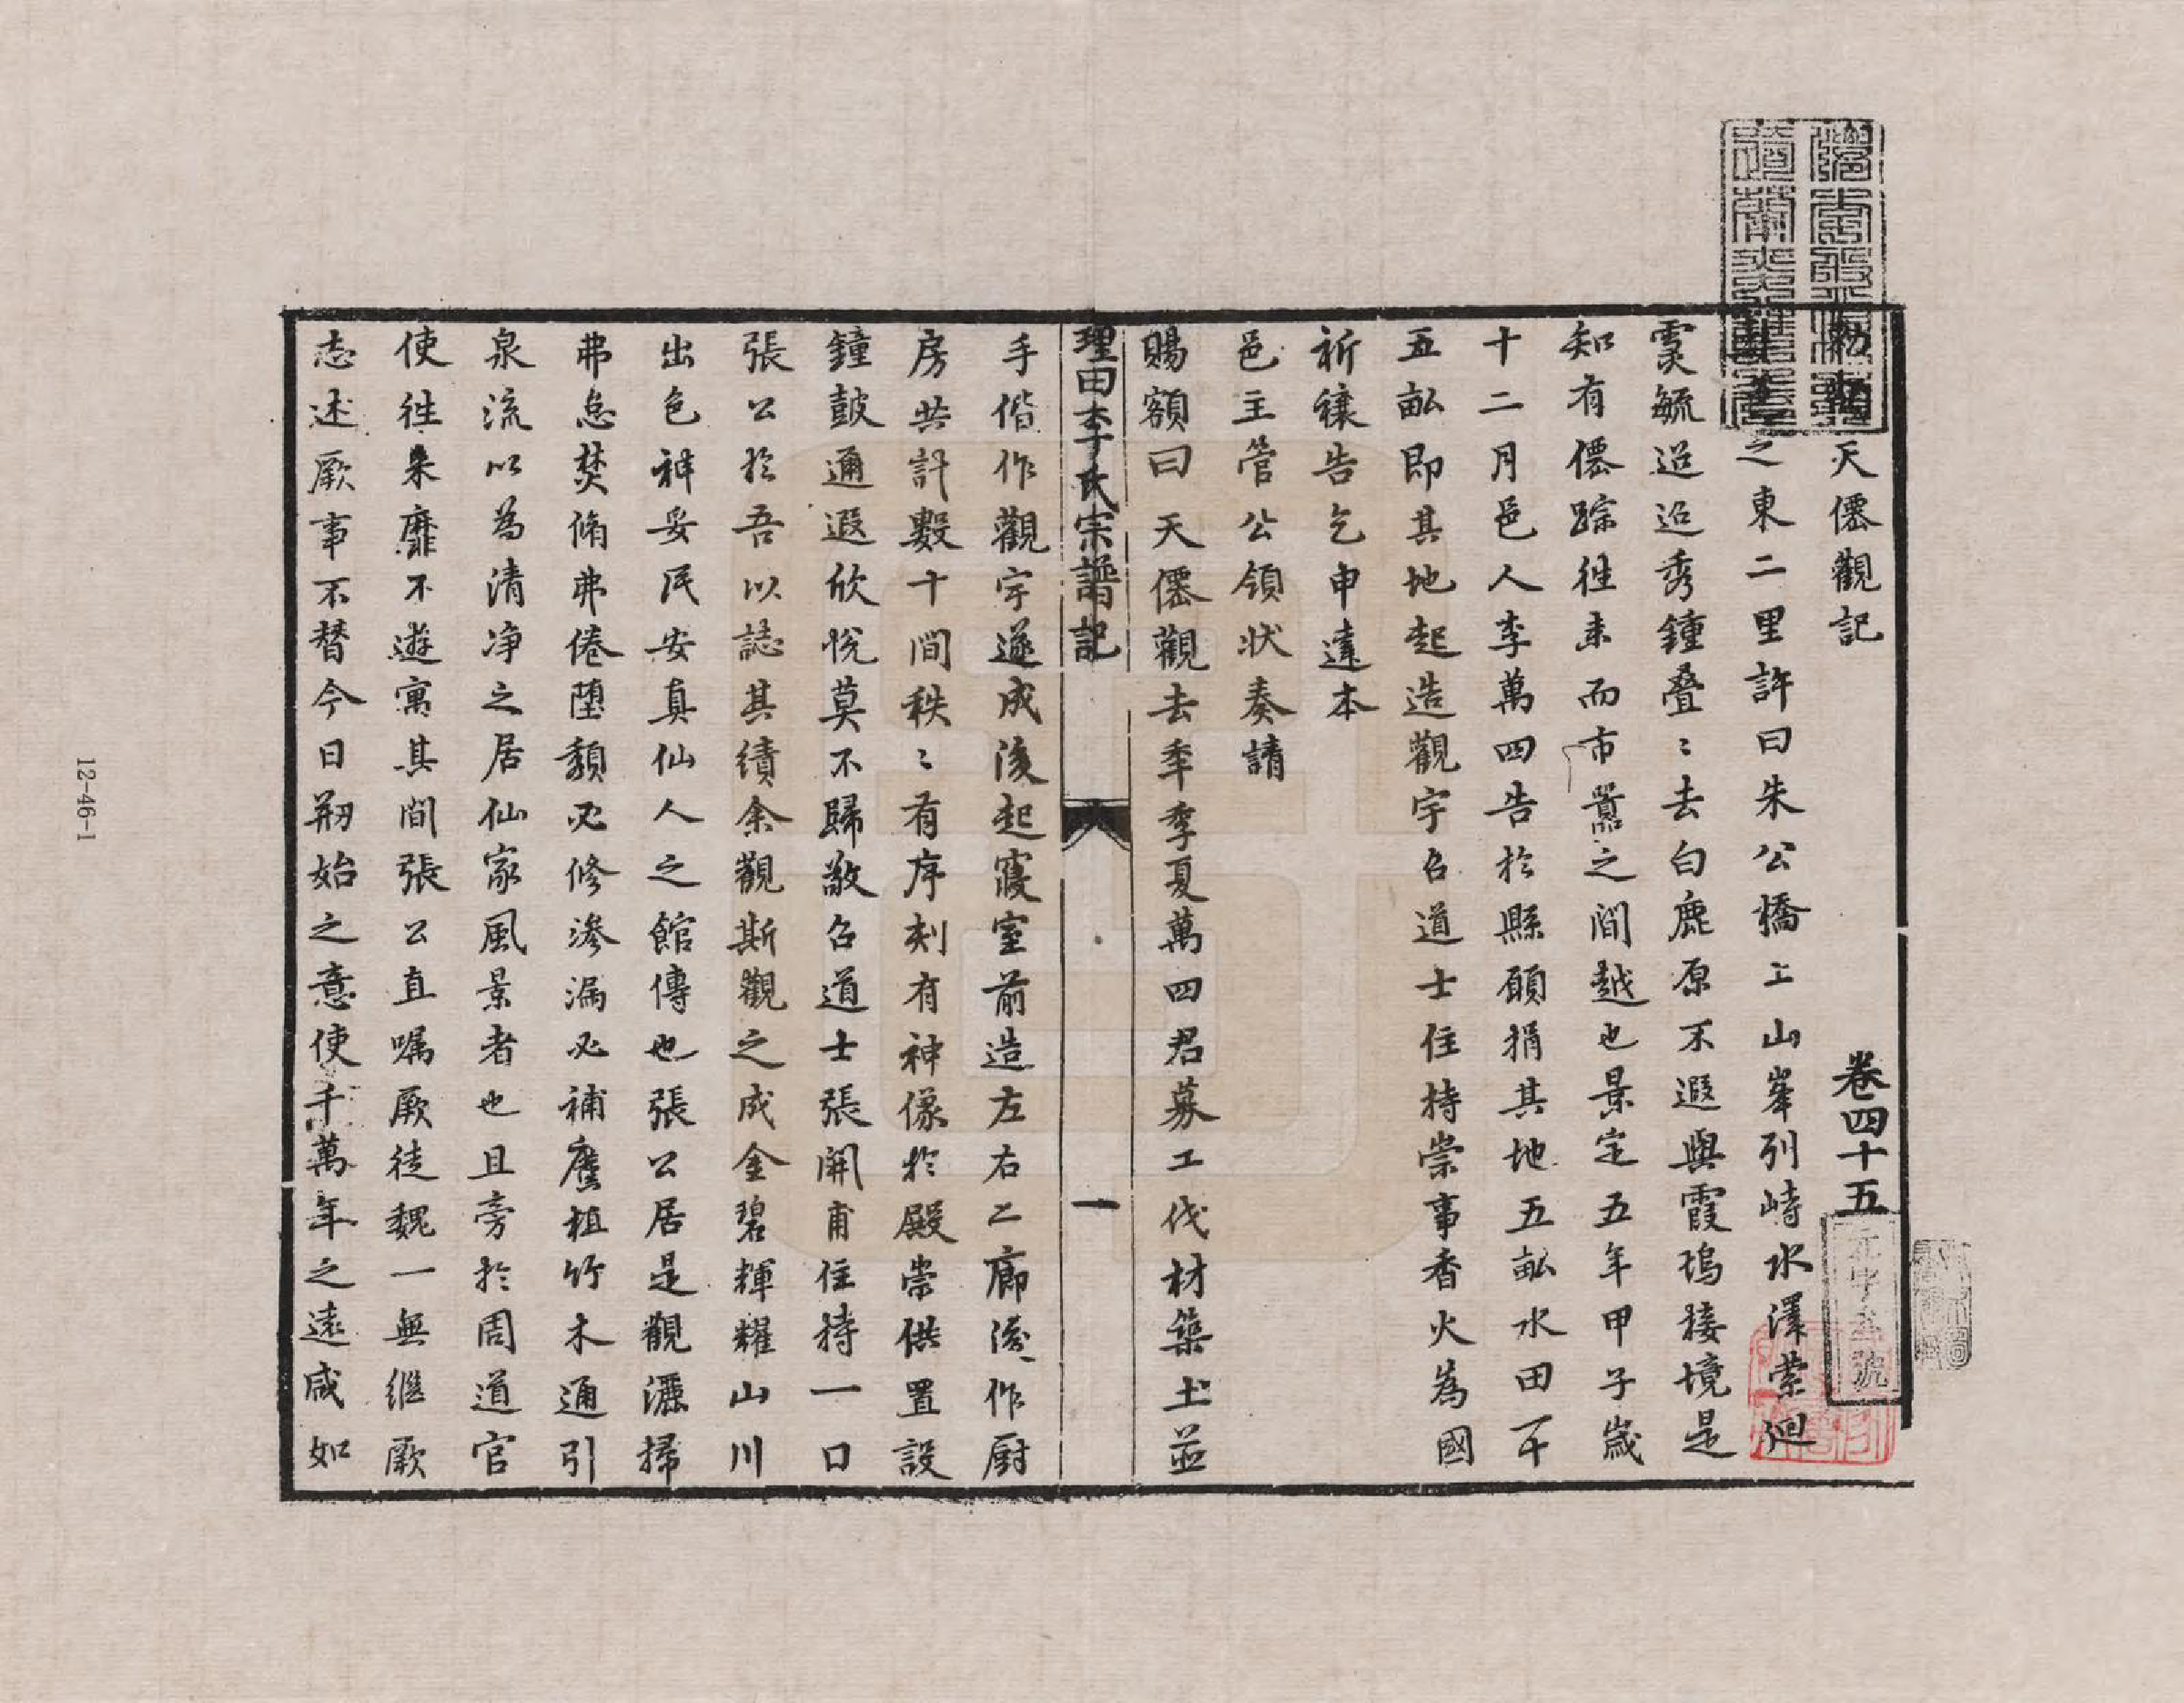 勅賜天僊觀記 卷四十五
之東二里許曰朱公橋上山峯列峙水澤縈迴
霙毓迢迢秀鍾叠〻去白鹿原不遐與霞塢接境是
知有僊踪徃來而市囂之間越也景定五年甲子歲
十二月邑人李萬四告於縣願捐其地五畝水田一千
五畝即其地起造觀宇召道士住持崇事香火為國
祈穰告乞申達本
邑主管公領狀奏請
賜額曰天僊觀去季季夏萬四君募工伐材築土並
理田李氏宗譜記 一
手偕作觀宇遂成後起寢室前造左右二廊後作厨
房共計數十間秩〻有序刻有神像於殿崇供置設
鐘皷邇遐欣悅莫不歸敬召道士張開甫住持一日
張公於吾以誌其績余觀斯觀之成金碧輝耀山川
出色神妥民安真仙人之館傳也張公居是觀灑掃
弗怠焚脩弗倦墮頹必修滲漏必補廣植竹木通引
泉流以為清净之居仙家風景者也且旁於周道官
使徃來靡不遊寓其間張公直嘱厥徒魏一無繼厥
志述厥事不替今日剏始之意使千萬年之遠咸如
12-46-1